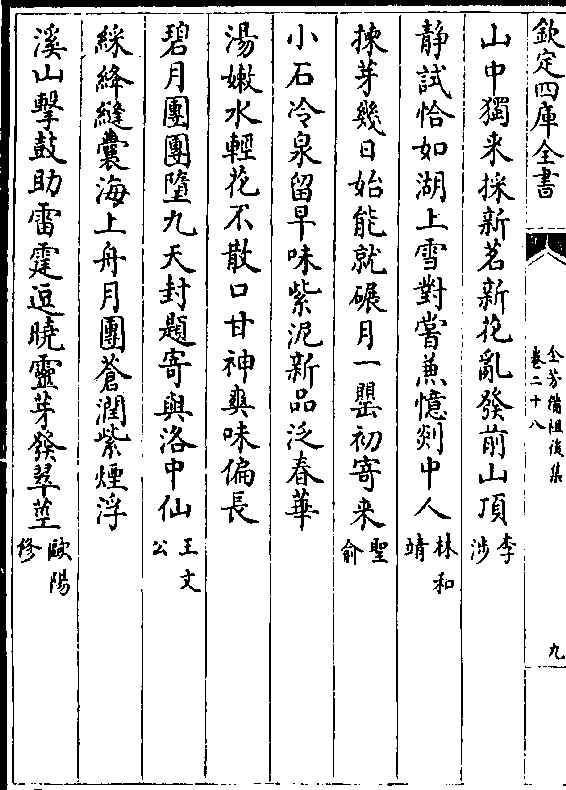 欽定四庫全書
全芳備祖後集
卷二十八
九
山中獨来採新茗新花亂發前山頂李涉
靜試恰如湖上雪對嘗兼憶剡中人林和靖
揀芽幾日始能就碾月一罌初寄来聖俞
小石冷泉留早味紫泥新品泛春華
湯嫩水輕花不散口甘神爽味偏長
碧月團團墮九天封題寄與洛中仙王文公
綵絳縫囊海上舟月團蒼潤紫煙浮
溪山擊鼓助雷霆逗曉靈芽發翠莖歐陽修